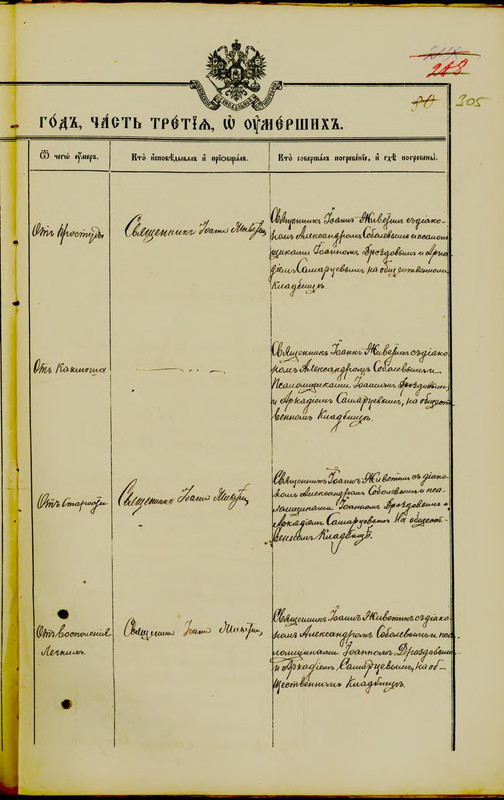 208
30
305
ГОДЪ, ЧАСТЬ ТРЕТІЯ, Ѿ ОУМЕРШИХЪ.
Ѿ чегѡ оумеръ.
Кто исповѣдывалъ и пріобщалъ.
Кто совершалъ погребеніе, и гдѣ погребены.
Отъ простуды
Священникъ Іоаннъ
Священникъ Іоаннъ съ діако-
номъ Александромъ Соболевымъ и псалом
щиками Іоанномъ Дроздовымъ и Арка
діемъ Самарцевымъ, на общественномъ
Кладбищѣ.
Отъ
Священникъ Іоаннъ съ діако-
номъ Александромъ Соболевымъ и
Псаломщиками Іоанномъ Дроздовымъ
и Аркадіемъ Самарцевымъ, на общест-
венномъ Кладбищѣ.
Отъ старости
Священникъ Іоаннъ
Священникъ Іоаннъ съ діако-
номъ Александромъ Соболевымъ и пса-
ломщиками Іоанномъ Дроздовымъ и
Аркадіемъ Самарцевымъ на общест-
венномъ Кладбищѣ.
Отъ воспаленія
Легкихъ.
Священникъ Іоаннъ
Священникъ Іоаннъ съ діако-
номъ Александромъ Соболевымъ и пса-
ломщиками Іоанномъ Дроздовымъ
и Аркадіемъ Самарцевымъ, на об-
щественномъ Кладбищѣ.